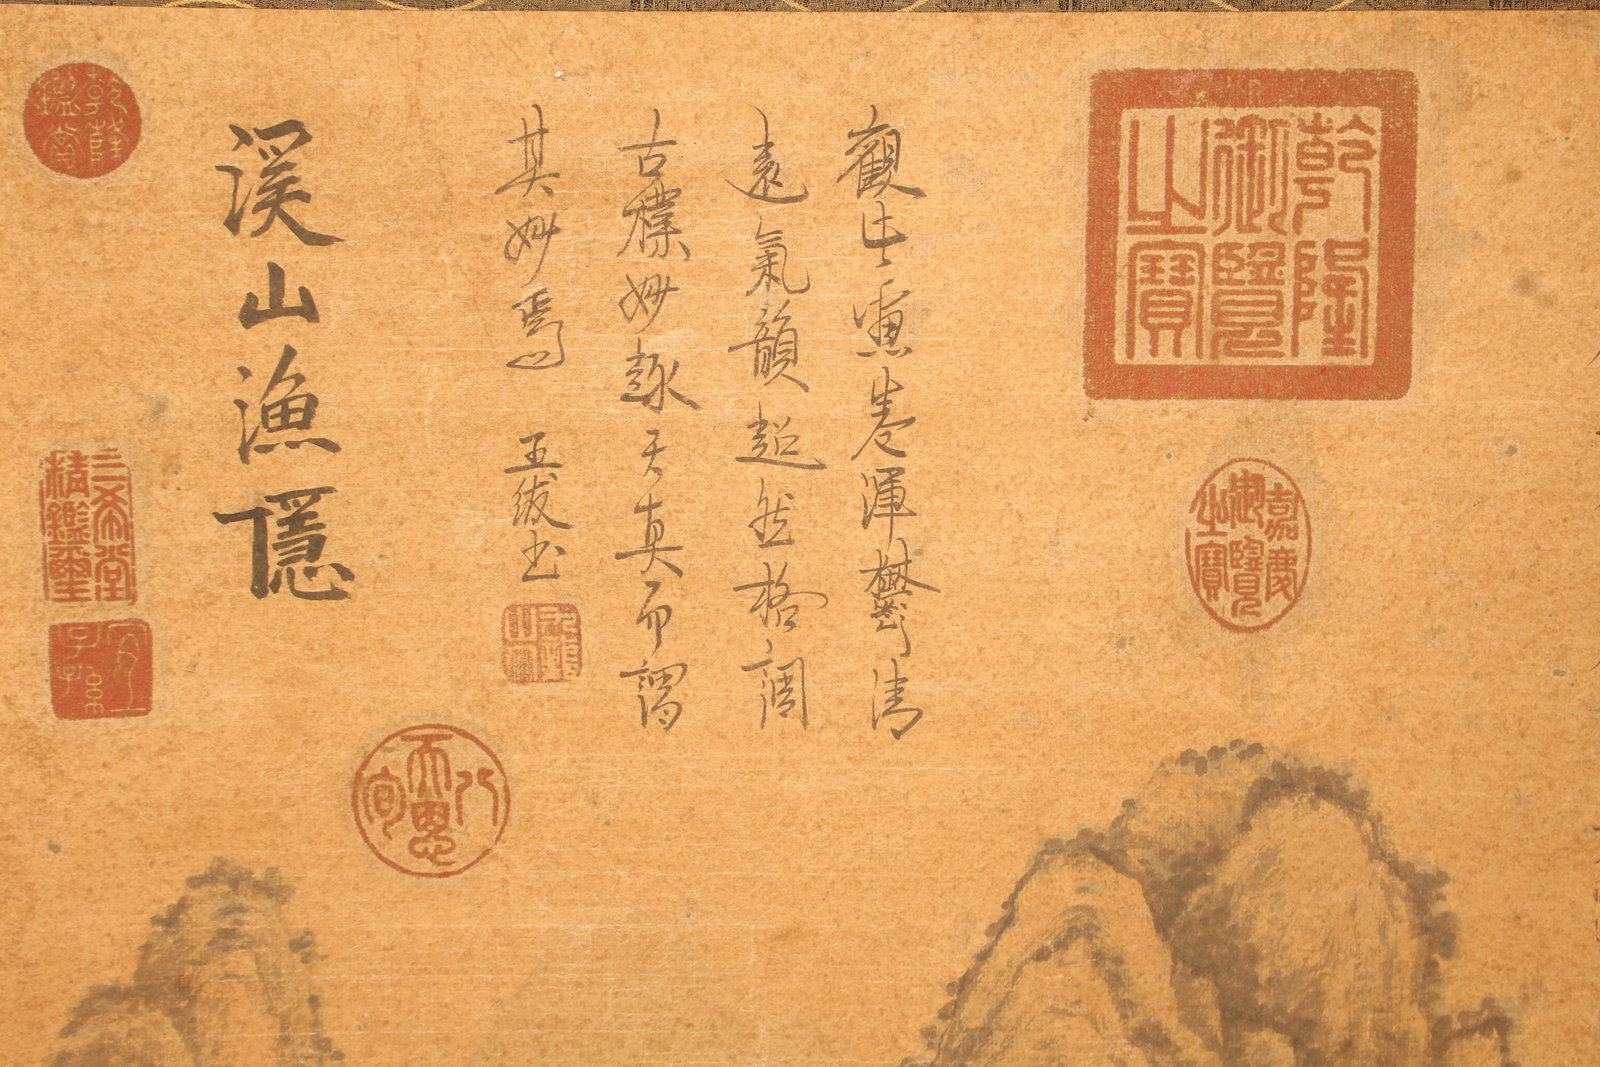 乾隆
御覽
之寶
嘉慶
御覽
之寶
觀此畫卷渾鬱清
遠氣韻超然格調
古樸妙趣天真而謂
其妙焉 王紱書
九龍
山人
八旬天恩
溪山漁隱
乾隆
鑑賞
三希堂
精鑑璽
宜
子孫